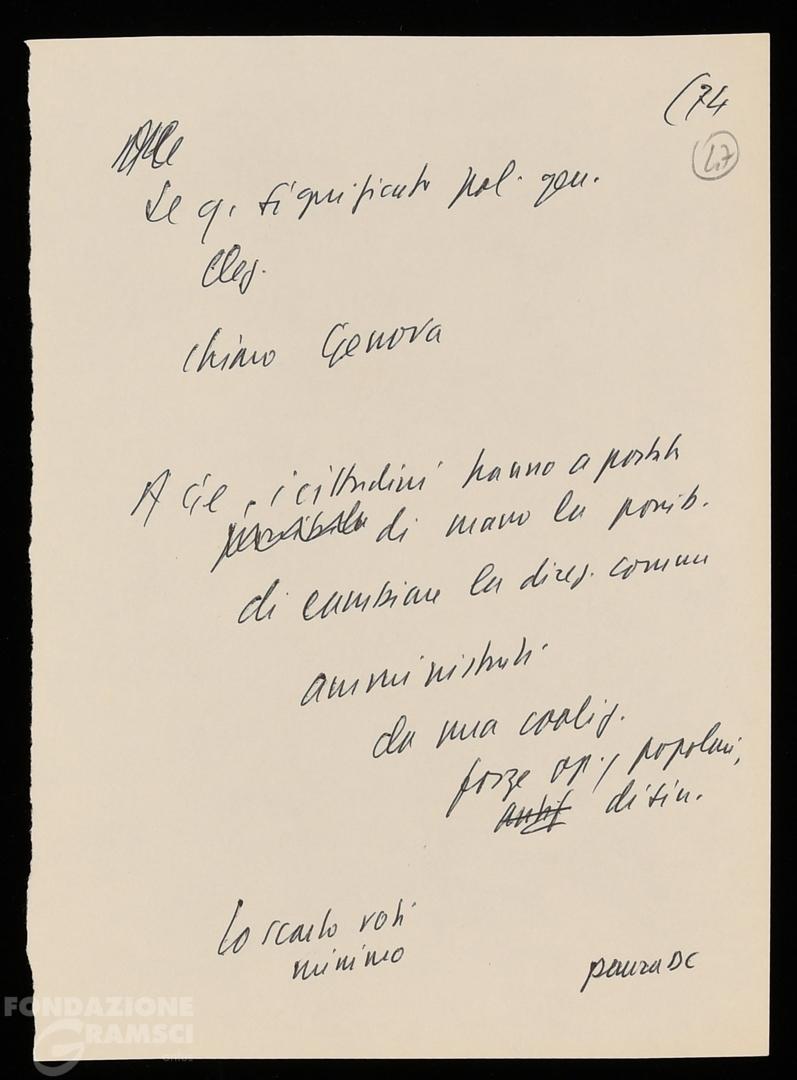 (74
47
Se q. significato pol. gen.
elez.
chiaro Genova
A Ge, i cittadini hanno a portata
di mano la possib.
di cambiare la direz. comun
amministrati
da una coaliz.
forze op., popolari,
antif di sin.
lo scarto voti
minimo
paura DC
FONDAZIONE
GRAMSCI
onlus